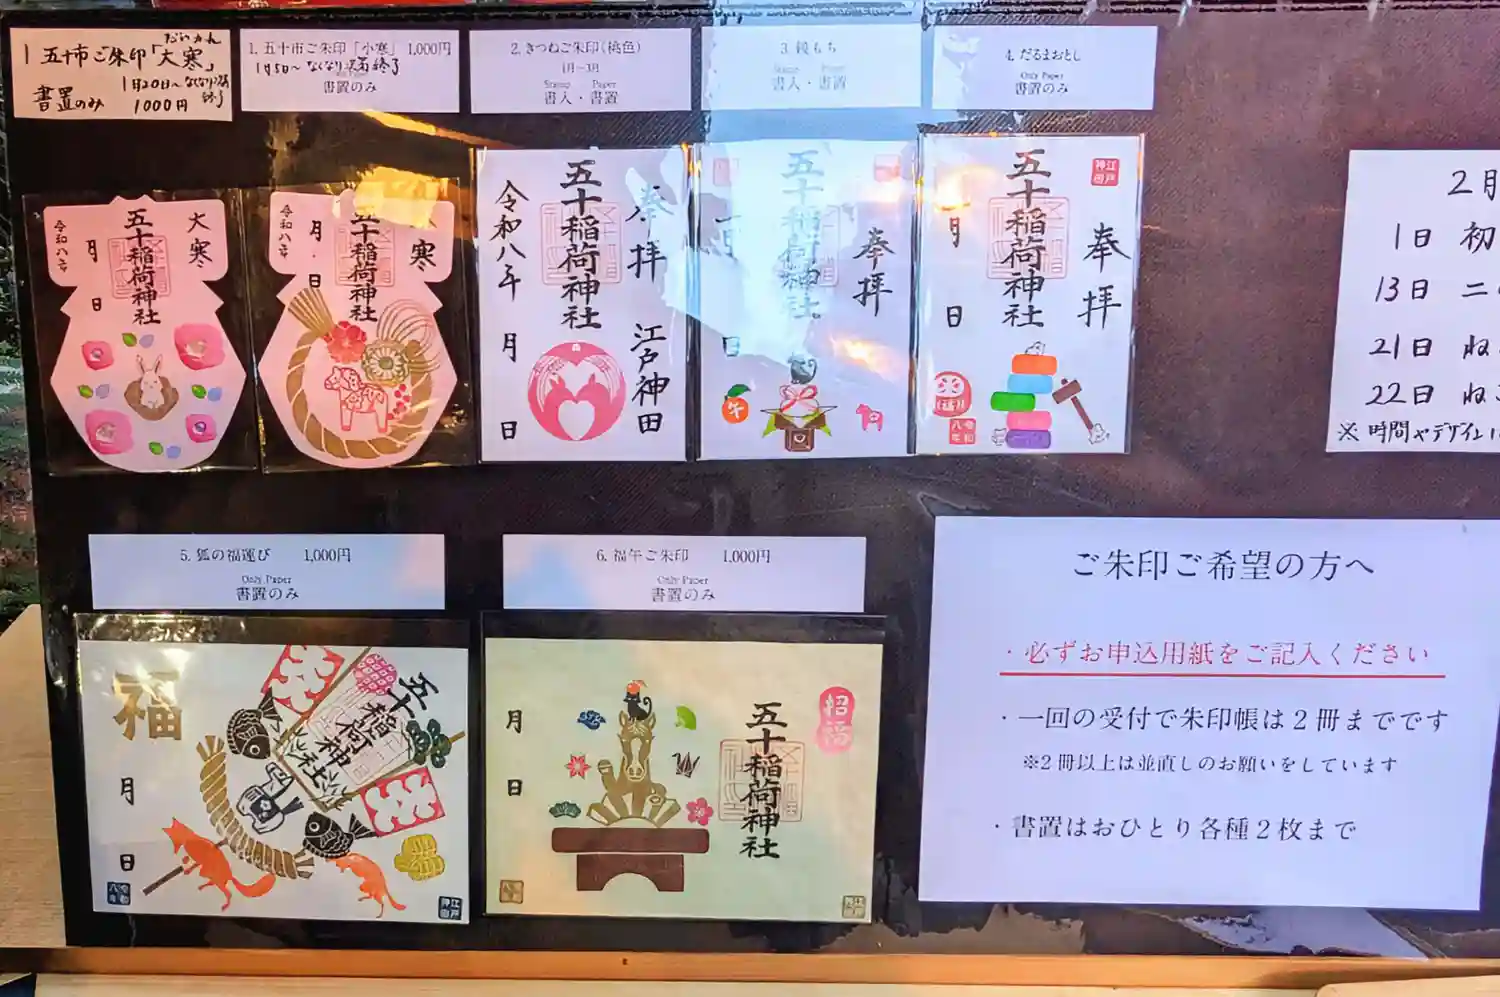 だいかん
1 五十市ご朱印「大寒」
1月20日~なくなり次第終了
書置のみ 1000円
1. 五十市ご朱印「小寒」 1,000円
1月5日~なくなり次第終了
書置のみ
2. きつねご朱印(桃色)
1月~3月
Stamp Paper
書入・書置
3. 鏡もち
Stamp Paper
書入・書置
4. だるまおとし
Only Paper
書置のみ
大寒
五十稲荷神社
令和八年
月
日
寒
五十稲荷神社
令和八年
月
日
奉拝
江戸神田
五十稲荷神社
令和八年
月
日
奉拝
五十稲荷神社
月
日
午
江戸神田
奉拝
五十稲荷神社
月
日
福
令和八年
2月
1日 初
13日 二
21日 ね
22日 ねこ
※時間やデザイン
5. 狐の福運び 1,000円
Only Paper
書置のみ
6. 福午ご朱印 1,000円
Only Paper
書置のみ
福
五十稲荷神社
月
日
令和八年
江戸神田
招福
五十稲荷神社
月
日
ご朱印ご希望の方へ
・必ずお申込用紙をご記入ください
・一回の受付で朱印帳は2冊までです
※2冊以上は並直しのお願いをしています
・書置はおひとり各種2枚まで